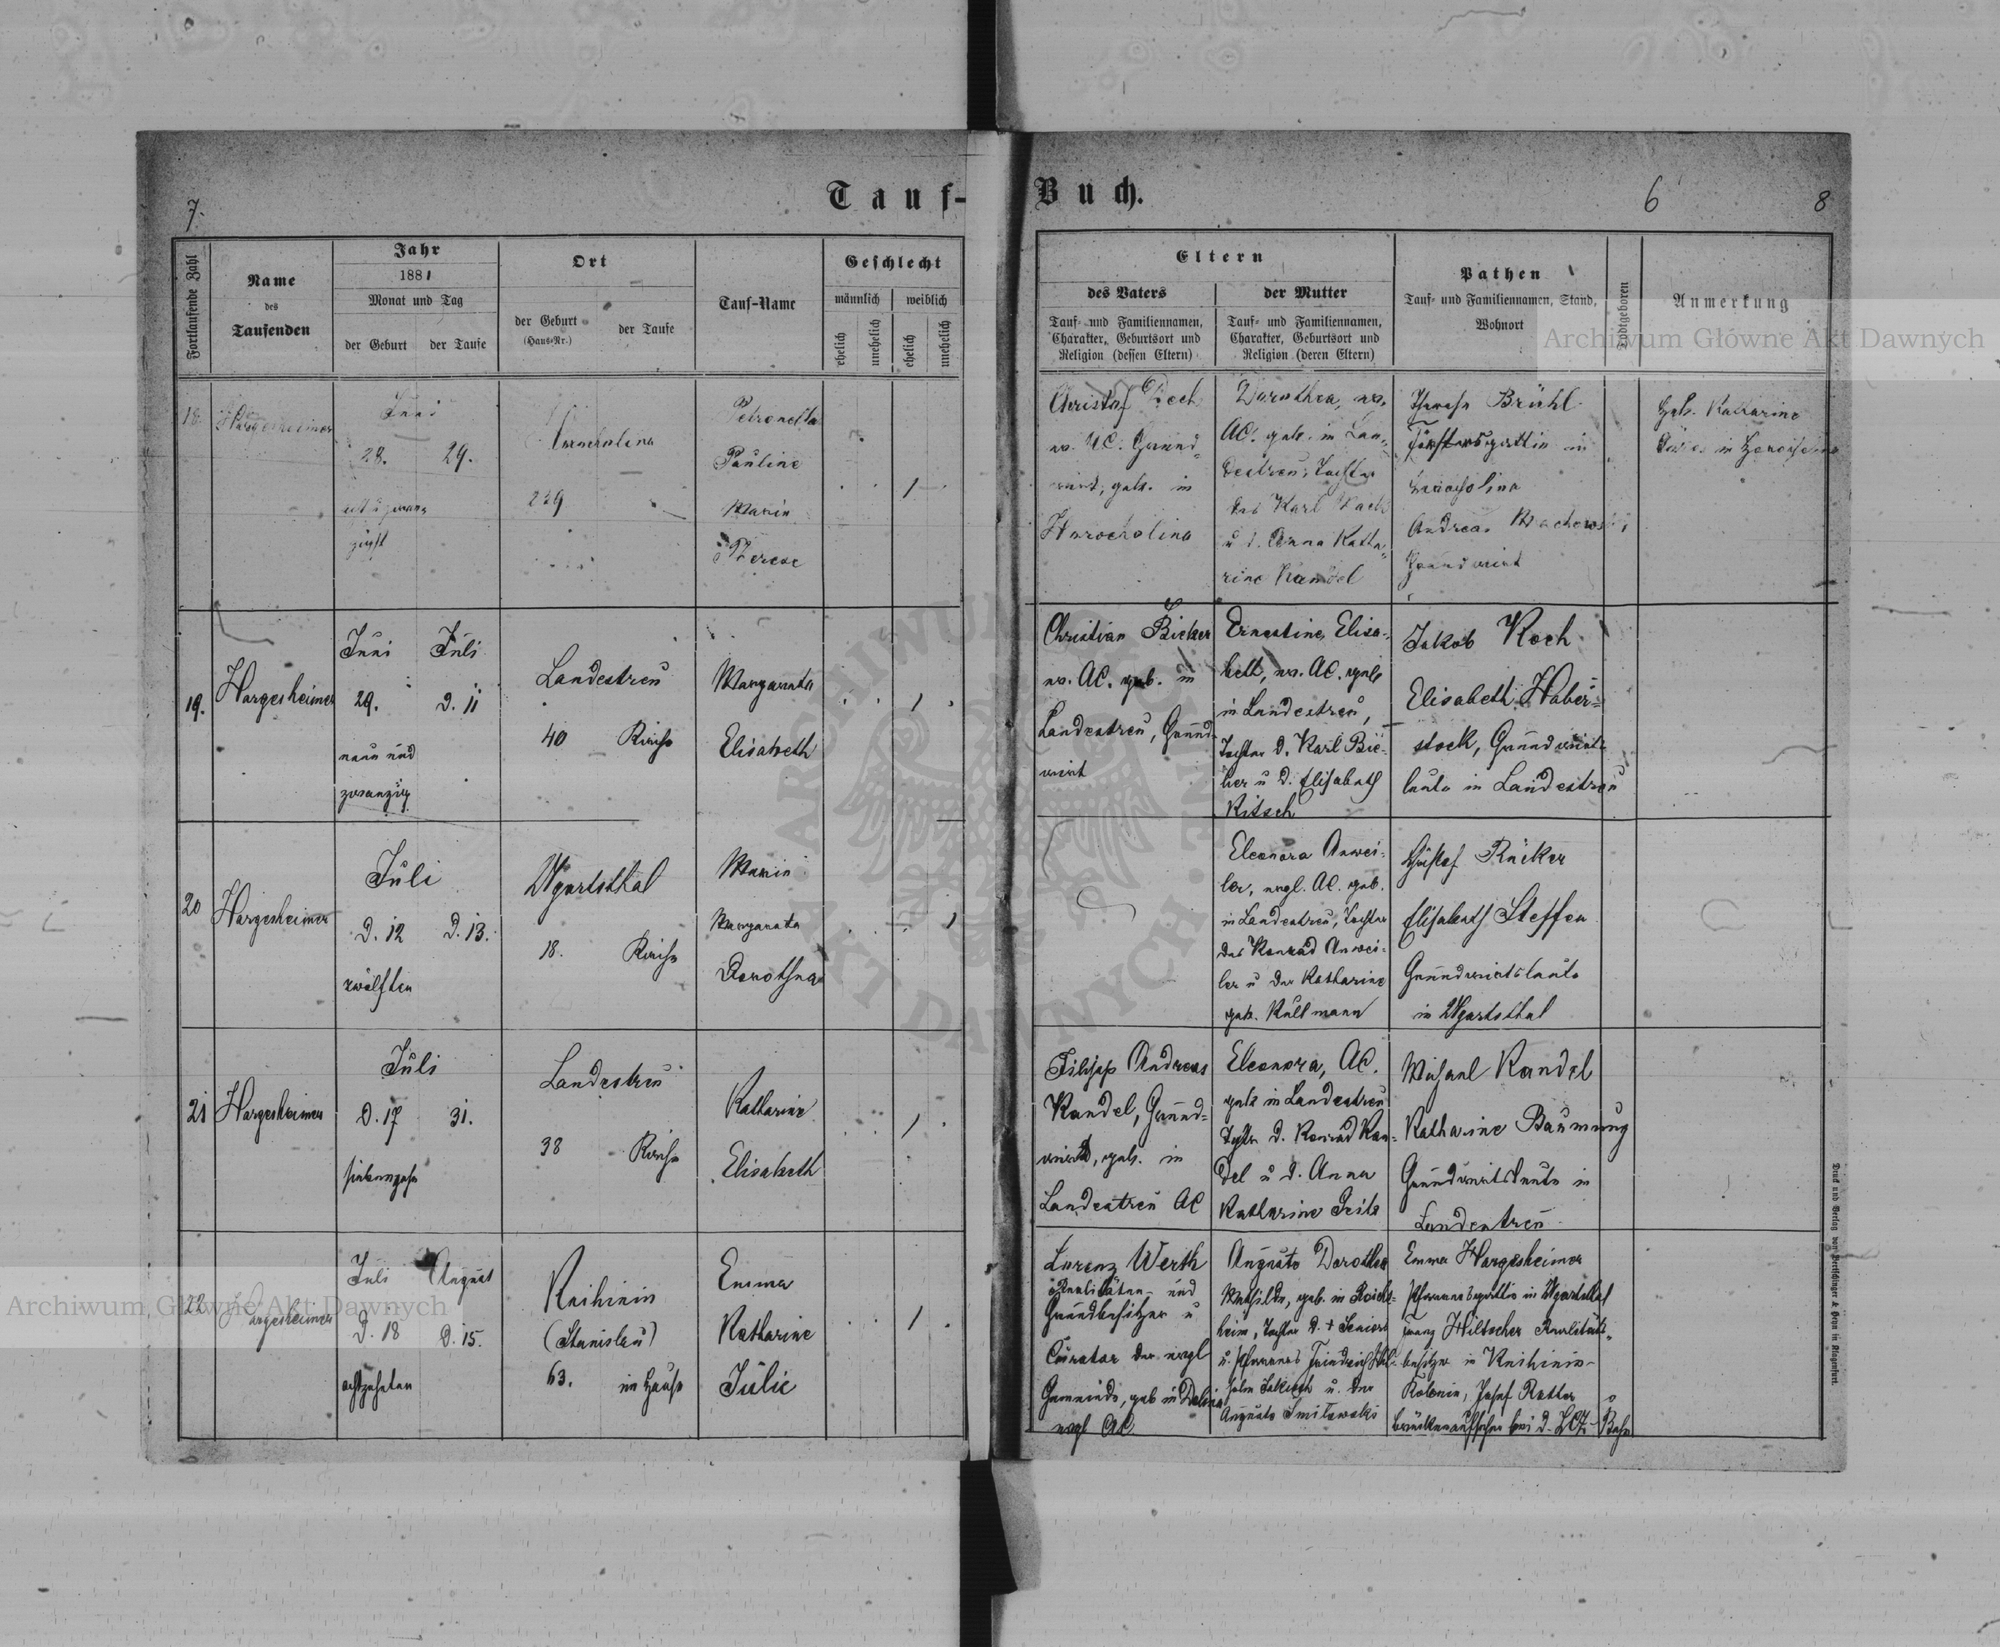 Tauf-
Buch.
7.
6
8
Fortlaufende Zahl
Name
des
Taufenden
Jahr
1881
Monat und Tag
der Geburt
der Taufe
Ort
der Geburt
(Haus-Nr.)
der Taufe
Tauf-Name
Geschlecht
männlich
weiblich
ehelich
unehelich
ehelich
unehelich
Eltern
des Vaters
Tauf- und Familiennamen,
Charakter, Geburtsort und
Religion (dessen Eltern)
der Mutter
Tauf- und Familiennamen,
Charakter, Geburtsort und
Religion (deren Eltern)
Pathen
Tauf- und Familiennamen, Stand,
Wohnort
Todtgeboren
Anmerkung
18.
Hargesheimer
Juni
28.
29.
239
Petronella
Pauline
Marie
Therese
Christof
geb. in
Dorothea, ev.
AC. geb. in Lan-
destreu, Tochter
des Karl
u d. Anna Katha-
rine Kandel
Therese Brühl
Förstersgattin in
Andreas
Grundwirt
Geb. Katharine
19.
Hargesheimer
Juni
Juli
29.
d. 11
neun und
zwanzig
Landestreu
40
Kirche
Margareta
Elisabeth
Christian Bicker
ev. AC. geb. in
Landestreu, Grund-
wirt
Ernestine Elisa-
beth, ev. AC. geb
in Landestreu,
Tochter d. Karl Bie-
ber u d. Elisabeth
Ritsch
Jakob Koch
Elisabeth Haber-
stock, Grundwirts-
leute in Landestreu
20
Hargesheimer
Juli
d. 12
d. 13.
zwölften
Ugartsthal
18.
Kirche
Marie
Margareta
Dorothea
Eleonora Anwei-
ler, evgl. AC. geb.
in Landestreu, Tochter
des Konrad Anwei-
ler u der Katharine
geb. Kullmann
Gustaf Räker
Elisabeth Steffen
Grundwirtsleute
in Ugartsthal
21
Hargesheimer
Juli
d. 17
31.
siebenzehn
Landestreu
38
Kirche
Katharine
Elisabeth
Filipp Andreas
Kandel, Grund-
wirt, geb. in
Landestreu AC
Eleonora, AC.
geb in Landestreu
Tochter d. Konrad Kan-
del u d. Anna
Katharine
Michael Kandel
Katharine Baumung
Grundwirtsleute in
Landestreu
22
Hargesheimer
Juli
August
d. 18
d. 15.
achtzehnten
Knihinin
(Stanislau)
63.
im Hause
Emma
Katharine
Julie
Lorenz Werth
Realitäten- und
Grundbesitzer u
Curator der evgl
Gemeinde, geb in Dolina
evgl AC
Auguste Dorothea
Mathilde, geb. in Reichs-
heim, Tochter d. + Seniors
u. Pfarrers Friedrich Wil-
helm u. der
Auguste Smilowski
Emma Hargesheimer
Pfarrersgattin in Ugartsthal
Franz Hiltscher Realitäten-
besitzer in Knihinin-
Kolonie, Josef Retter
Brückenaufseher bei d. LCJ-Bahn
Druck und Verlag von Bertschinger & Heyn in Klagenfurt.
Archiwum Główne Akt Dawnych
Archiwum Główne Akt Dawnych